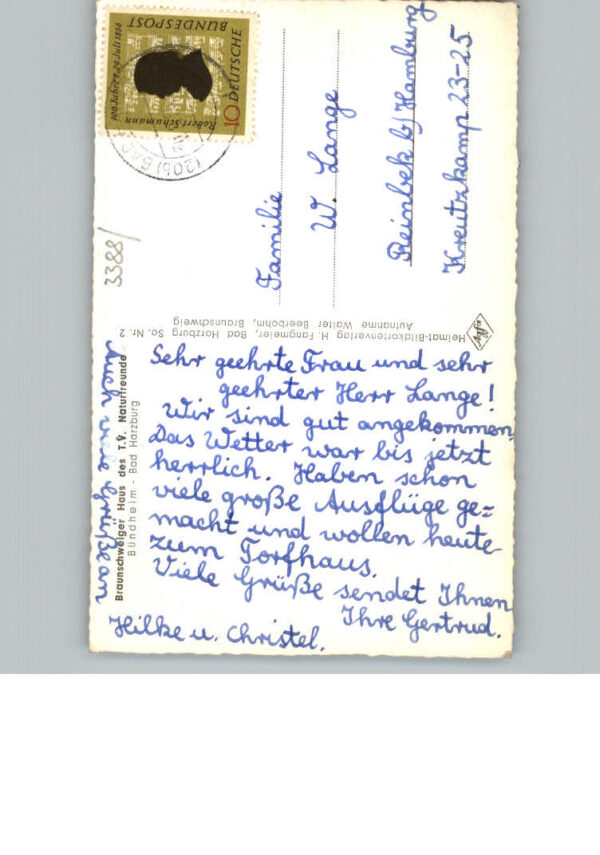 Sehr geehrte Frau und sehr
geehrter Herr Lange!
Wir sind gut angekommen.
Das Wetter war bis jetzt
herrlich. Haben schon
viele große Ausflüge ge=
macht und wollen heute
zum Torfhaus.
Viele Grüße sendet Ihnen
Ihre Gertrud.
Auch viele Grüße an
Hilke u. Christel.
Braunschweiger Haus des T.V. Naturfreunde
Bündheim - Bad Harzburg
Heimat-Bildkartenverlag H. Fangmeier, Bad Harzburg So. Nr. 2
Aufnahme Walter Beerbohm, Braunschweig
Familie
W. Lange
Reinbek b/Hamburg
Kreutzkamp 23-25
3388/
DEUTSCHE
BUNDESPOST
10
Robert Schumann
100 Jahre † 29. Juli 1856
(20b) BAD